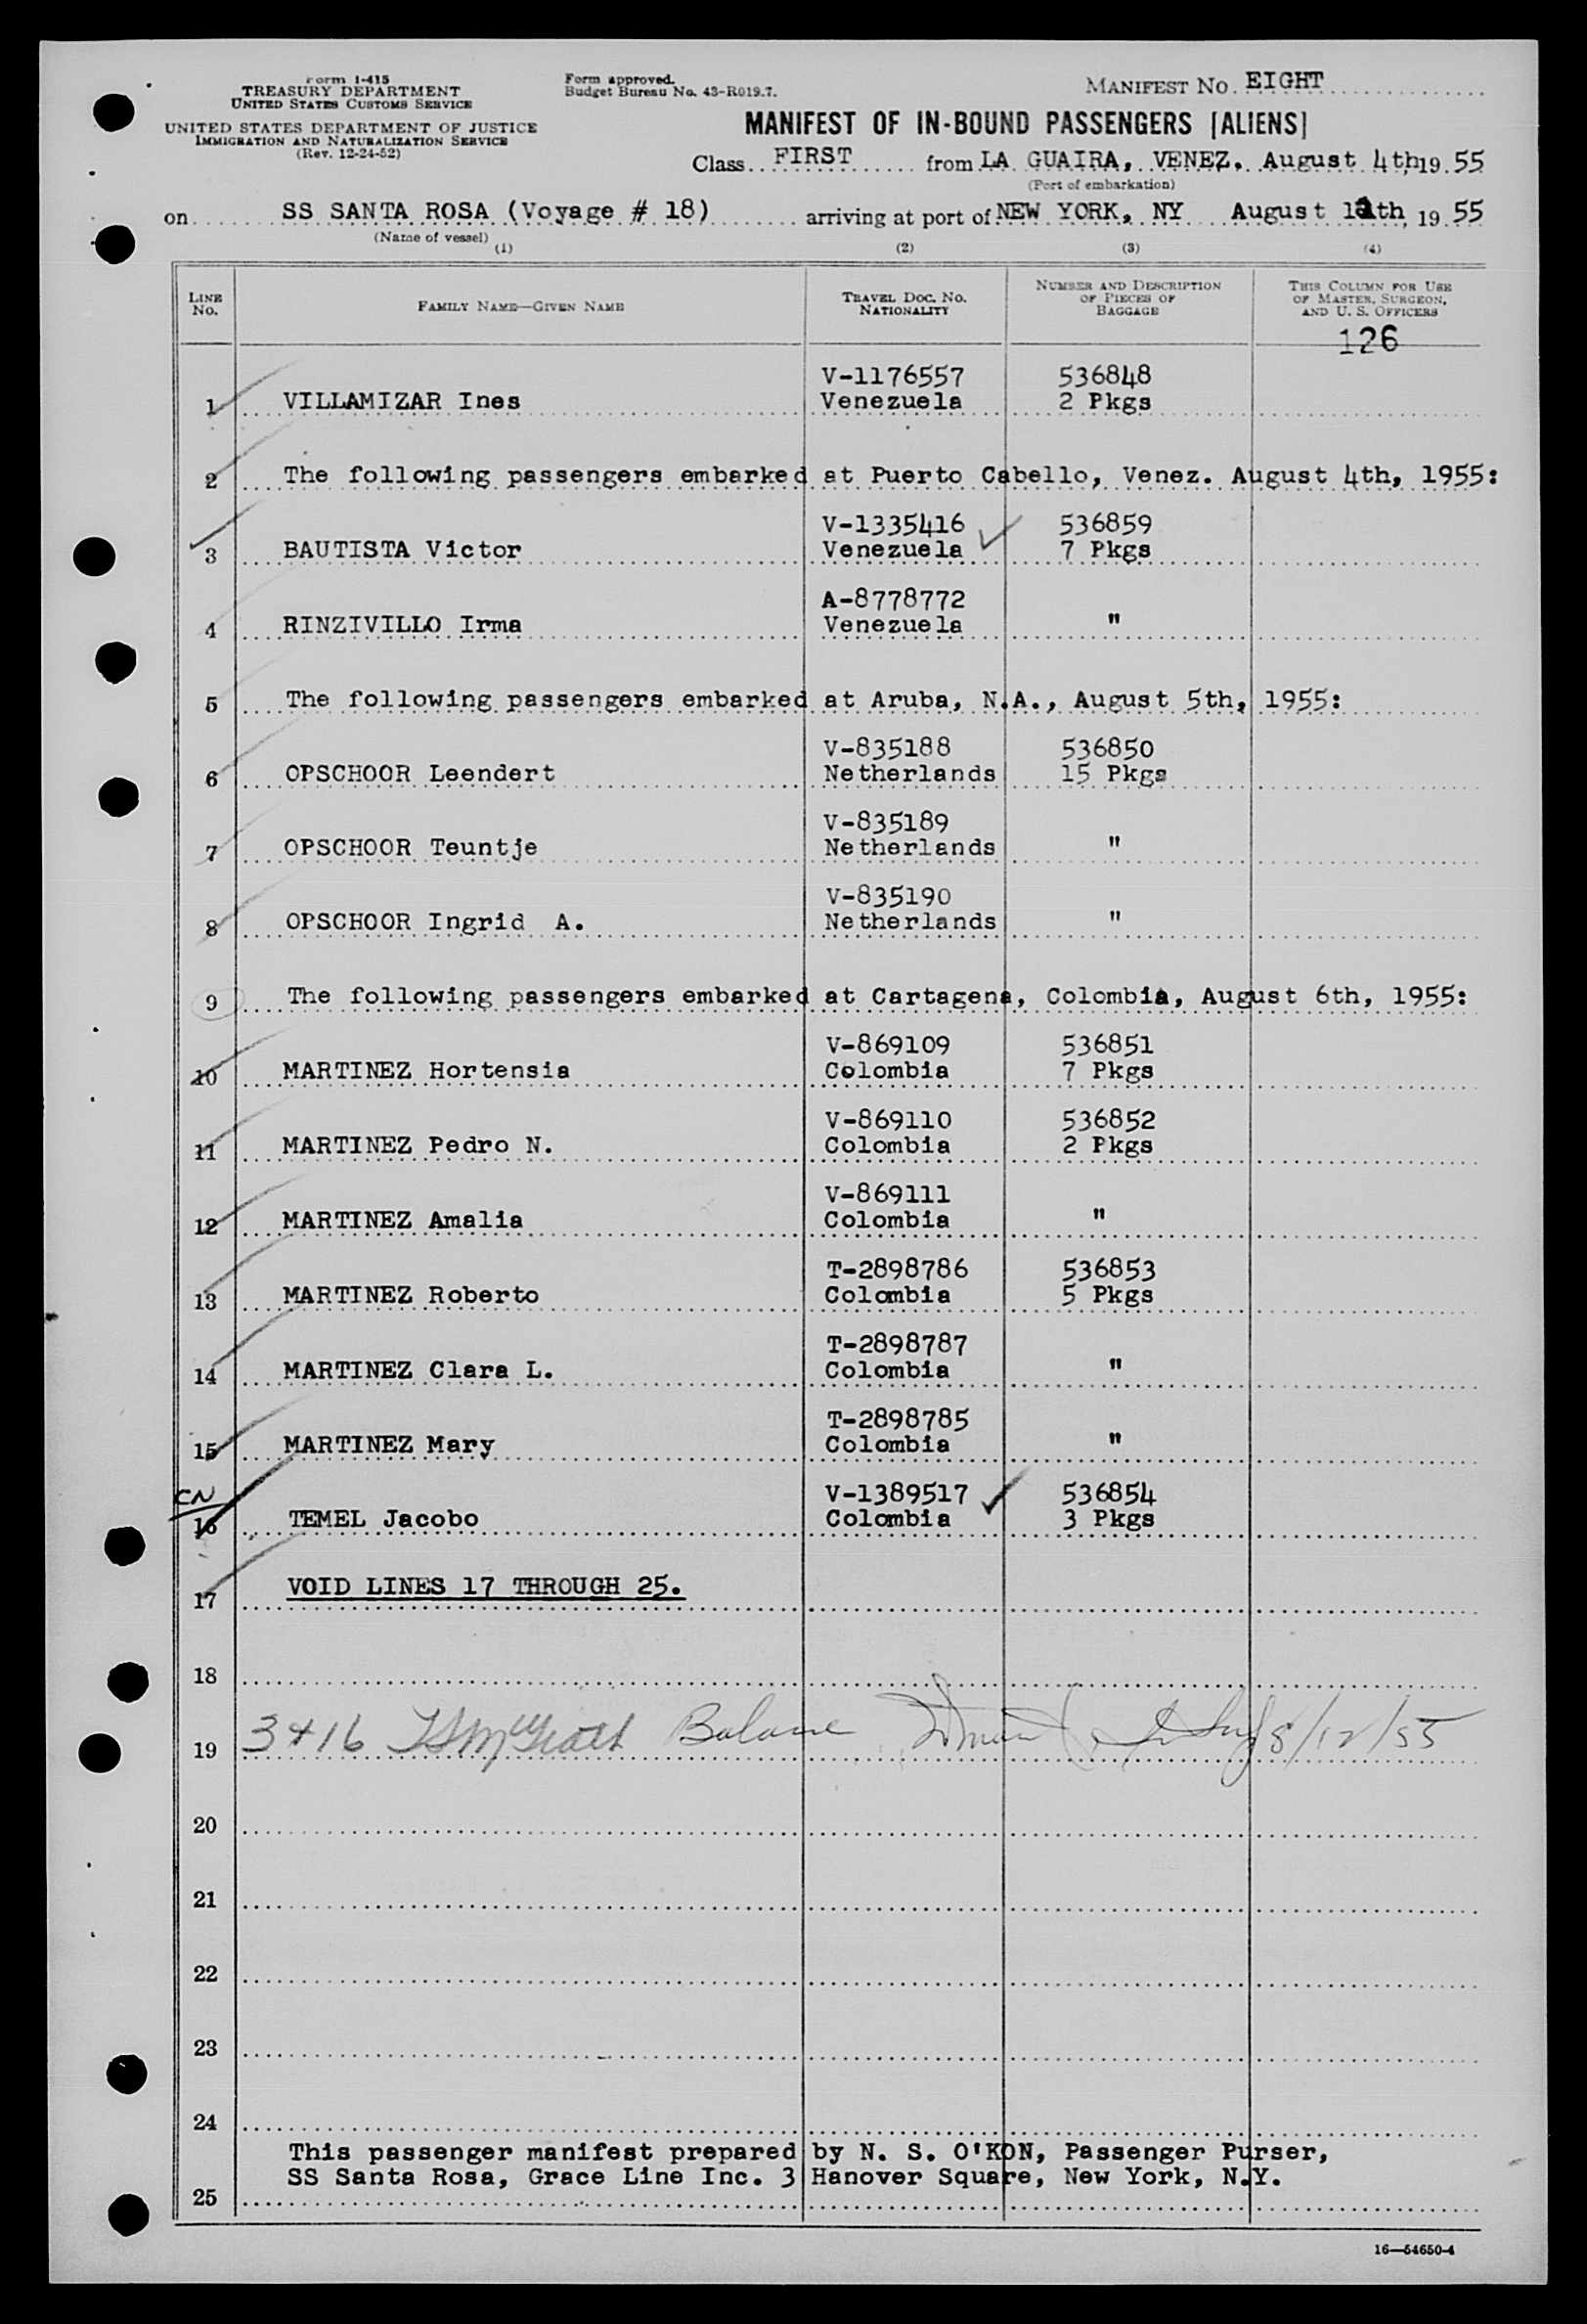 Form I-415
TREASURY DEPARTMENT
UNITED STATES CUSTOMS SERVICE
UNITED STATES DEPARTMENT OF JUSTICE
IMMIGRATION AND NATURALIZATION SERVICE
(Rev. 12-24-52)
Form approved.
Budget Bureau No. 43-R019.7.
MANIFEST NO. EIGHT
MANIFEST OF IN-BOUND PASSENGERS [ALIENS]
Class FIRST from LA GUAIRA, VENEZ. August 4th, 19 55
(Port of embarkation)
on SS SANTA ROSA (Voyage # 18) arriving at port of NEW YORK, NY August 12th, 19 55
(Name of vessel)
(1) (2) (3) (4)
LINE NO. FAMILY NAME—GIVEN NAME TRAVEL DOC. NO. NATIONALITY NUMBER AND DESCRIPTION OF PIECES OF BAGGAGE THIS COLUMN FOR USE OF MASTER, SURGEON, AND U. S. OFFICERS
126
V-1176557 536848
1 VILLAMIZAR Ines Venezuela 2 Pkgs
2 The following passengers embarked at Puerto Cabello, Venez. August 4th, 1955:
V-1335416 536859
3 BAUTISTA Victor Venezuela 7 Pkgs
A-8778772
4 RINZIVILLO Irma Venezuela "
5 The following passengers embarked at Aruba, N.A., August 5th, 1955:
V-835188 536850
6 OPSCHOOR Leendert Netherlands 15 Pkgs
V-835189
7 OPSCHOOR Teuntje Netherlands "
V-835190
8 OPSCHOOR Ingrid A. Netherlands "
9 The following passengers embarked at Cartagena, Colombia, August 6th, 1955:
V-869109 536851
10 MARTINEZ Hortensia Colombia 7 Pkgs
V-869110 536852
11 MARTINEZ Pedro N. Colombia 2 Pkgs
V-869111
12 MARTINEZ Amalia Colombia "
T-2898786 536853
13 MARTINEZ Roberto Colombia 5 Pkgs
T-2898787
14 MARTINEZ Clara L. Colombia "
T-2898785
15 MARTINEZ Mary Colombia "
CN V-1389517 536854
16 TEMEL Jacobo Colombia 3 Pkgs
17 VOID LINES 17 THROUGH 25.
18
19 3+16 McGrath Balance 8/12/55
20
21
22
23
24
This passenger manifest prepared by N. S. O'KON, Passenger Purser,
SS Santa Rosa, Grace Line Inc. 3 Hanover Square, New York, N.Y.
25
16—54650-4